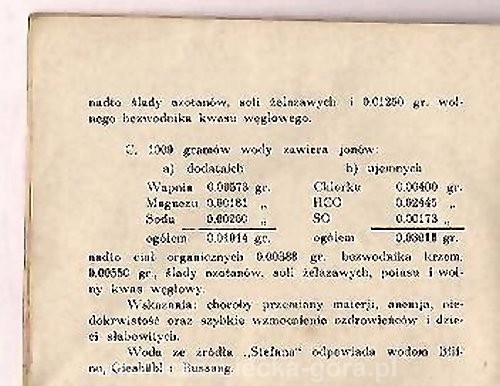 nadto ślady azotanów, soli żelazawych i 0.01250 gr. wol-
nego bezwodnika kwasu węglowego.
C. 1000 gramów wody zawiera jonów:
a) dodatnich b) ujemnych
Wapnia 0.00573 gr. Chlorku 0.00400 gr.
Magnezu 0.00181 „ HCO 0.02445 „
Sodu 0.00260 „ SO 0.00173 „
ogółem 0.01014 gr. ogółem 0.03018 gr.
nadto ciał organicznych 0.00388 gr. bezwodnika krzem.
0.00550 gr., ślady azotanów, soli żelazawych, potasu i wol-
ny kwas węglowy.
Wskazania: choroby przemiany materji, anemja, nie-
dokrwistość oraz szybkie wzmocnienie ozdrowieńców i dzie-
ci słabowitych.
Woda ze źródła „Stefana" odpowiada wodom Bili-
na, Gieshübl i Bussang.